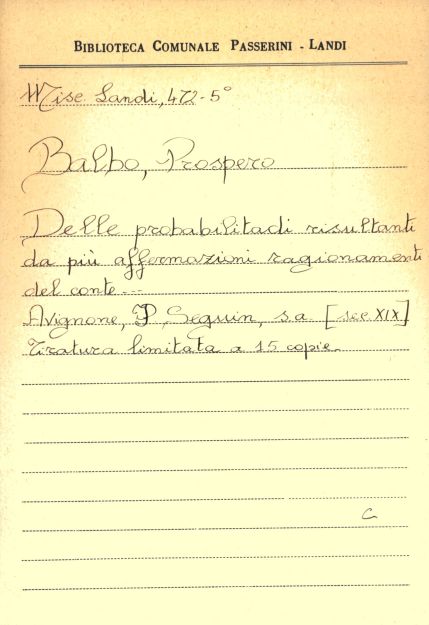 BIBLIOTECA COMUNALE PASSERINI - LANDI
Misc. Landi, 472-5°
Balbo, Prospero
Delle probabilitadi risultanti
da più affermazioni ragionamenti
del conte...
Avignone, P. Seguin, s.a. [sec XIX]
Tiratura limitata a 15 copie.
C